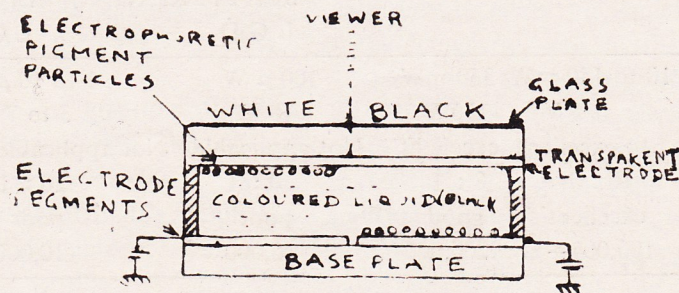 ELECTROPHORETIC
PIGMENT
PARTICLES
VIEWER
WHITE BLACK
GLASS
PLATE
TRANSPARENT
ELECTRODE
ELECTRODE
SEGMENTS
COLOURED LIQUID(BLACK
BASE PLATE